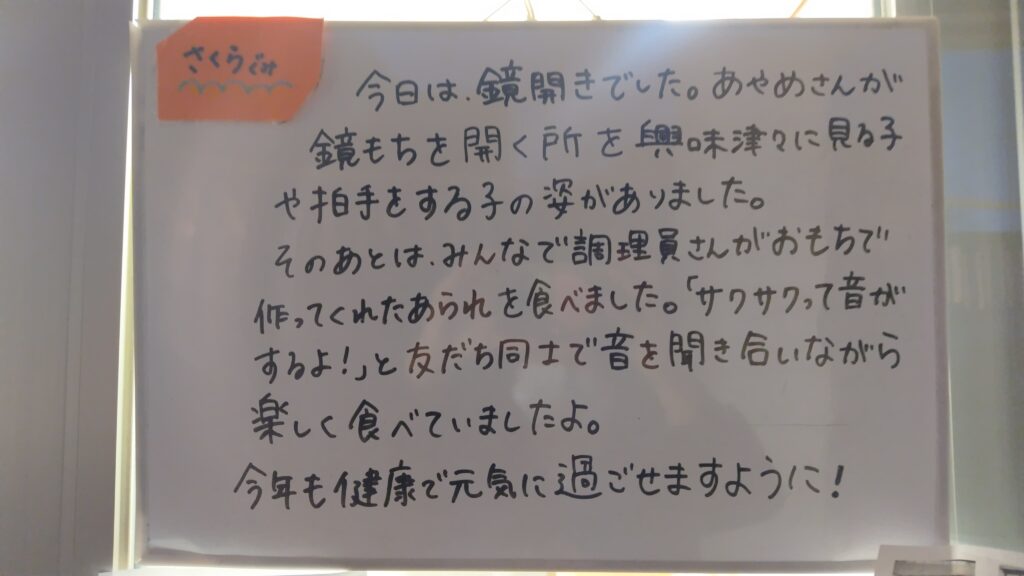 さくらぐみ
今日は、鏡開きでした。あやめさんが
鏡もちを開く所を興味津々に見る子
や拍手をする子の姿がありました。
そのあとは、みんなで調理員さんがおもちで
作ってくれたあられを食べました。「サクサクって音が
するよ!」と友だち同士で音を聞き合いながら
楽しく食べていましたよ。
今年も健康で元気に過ごせますように!